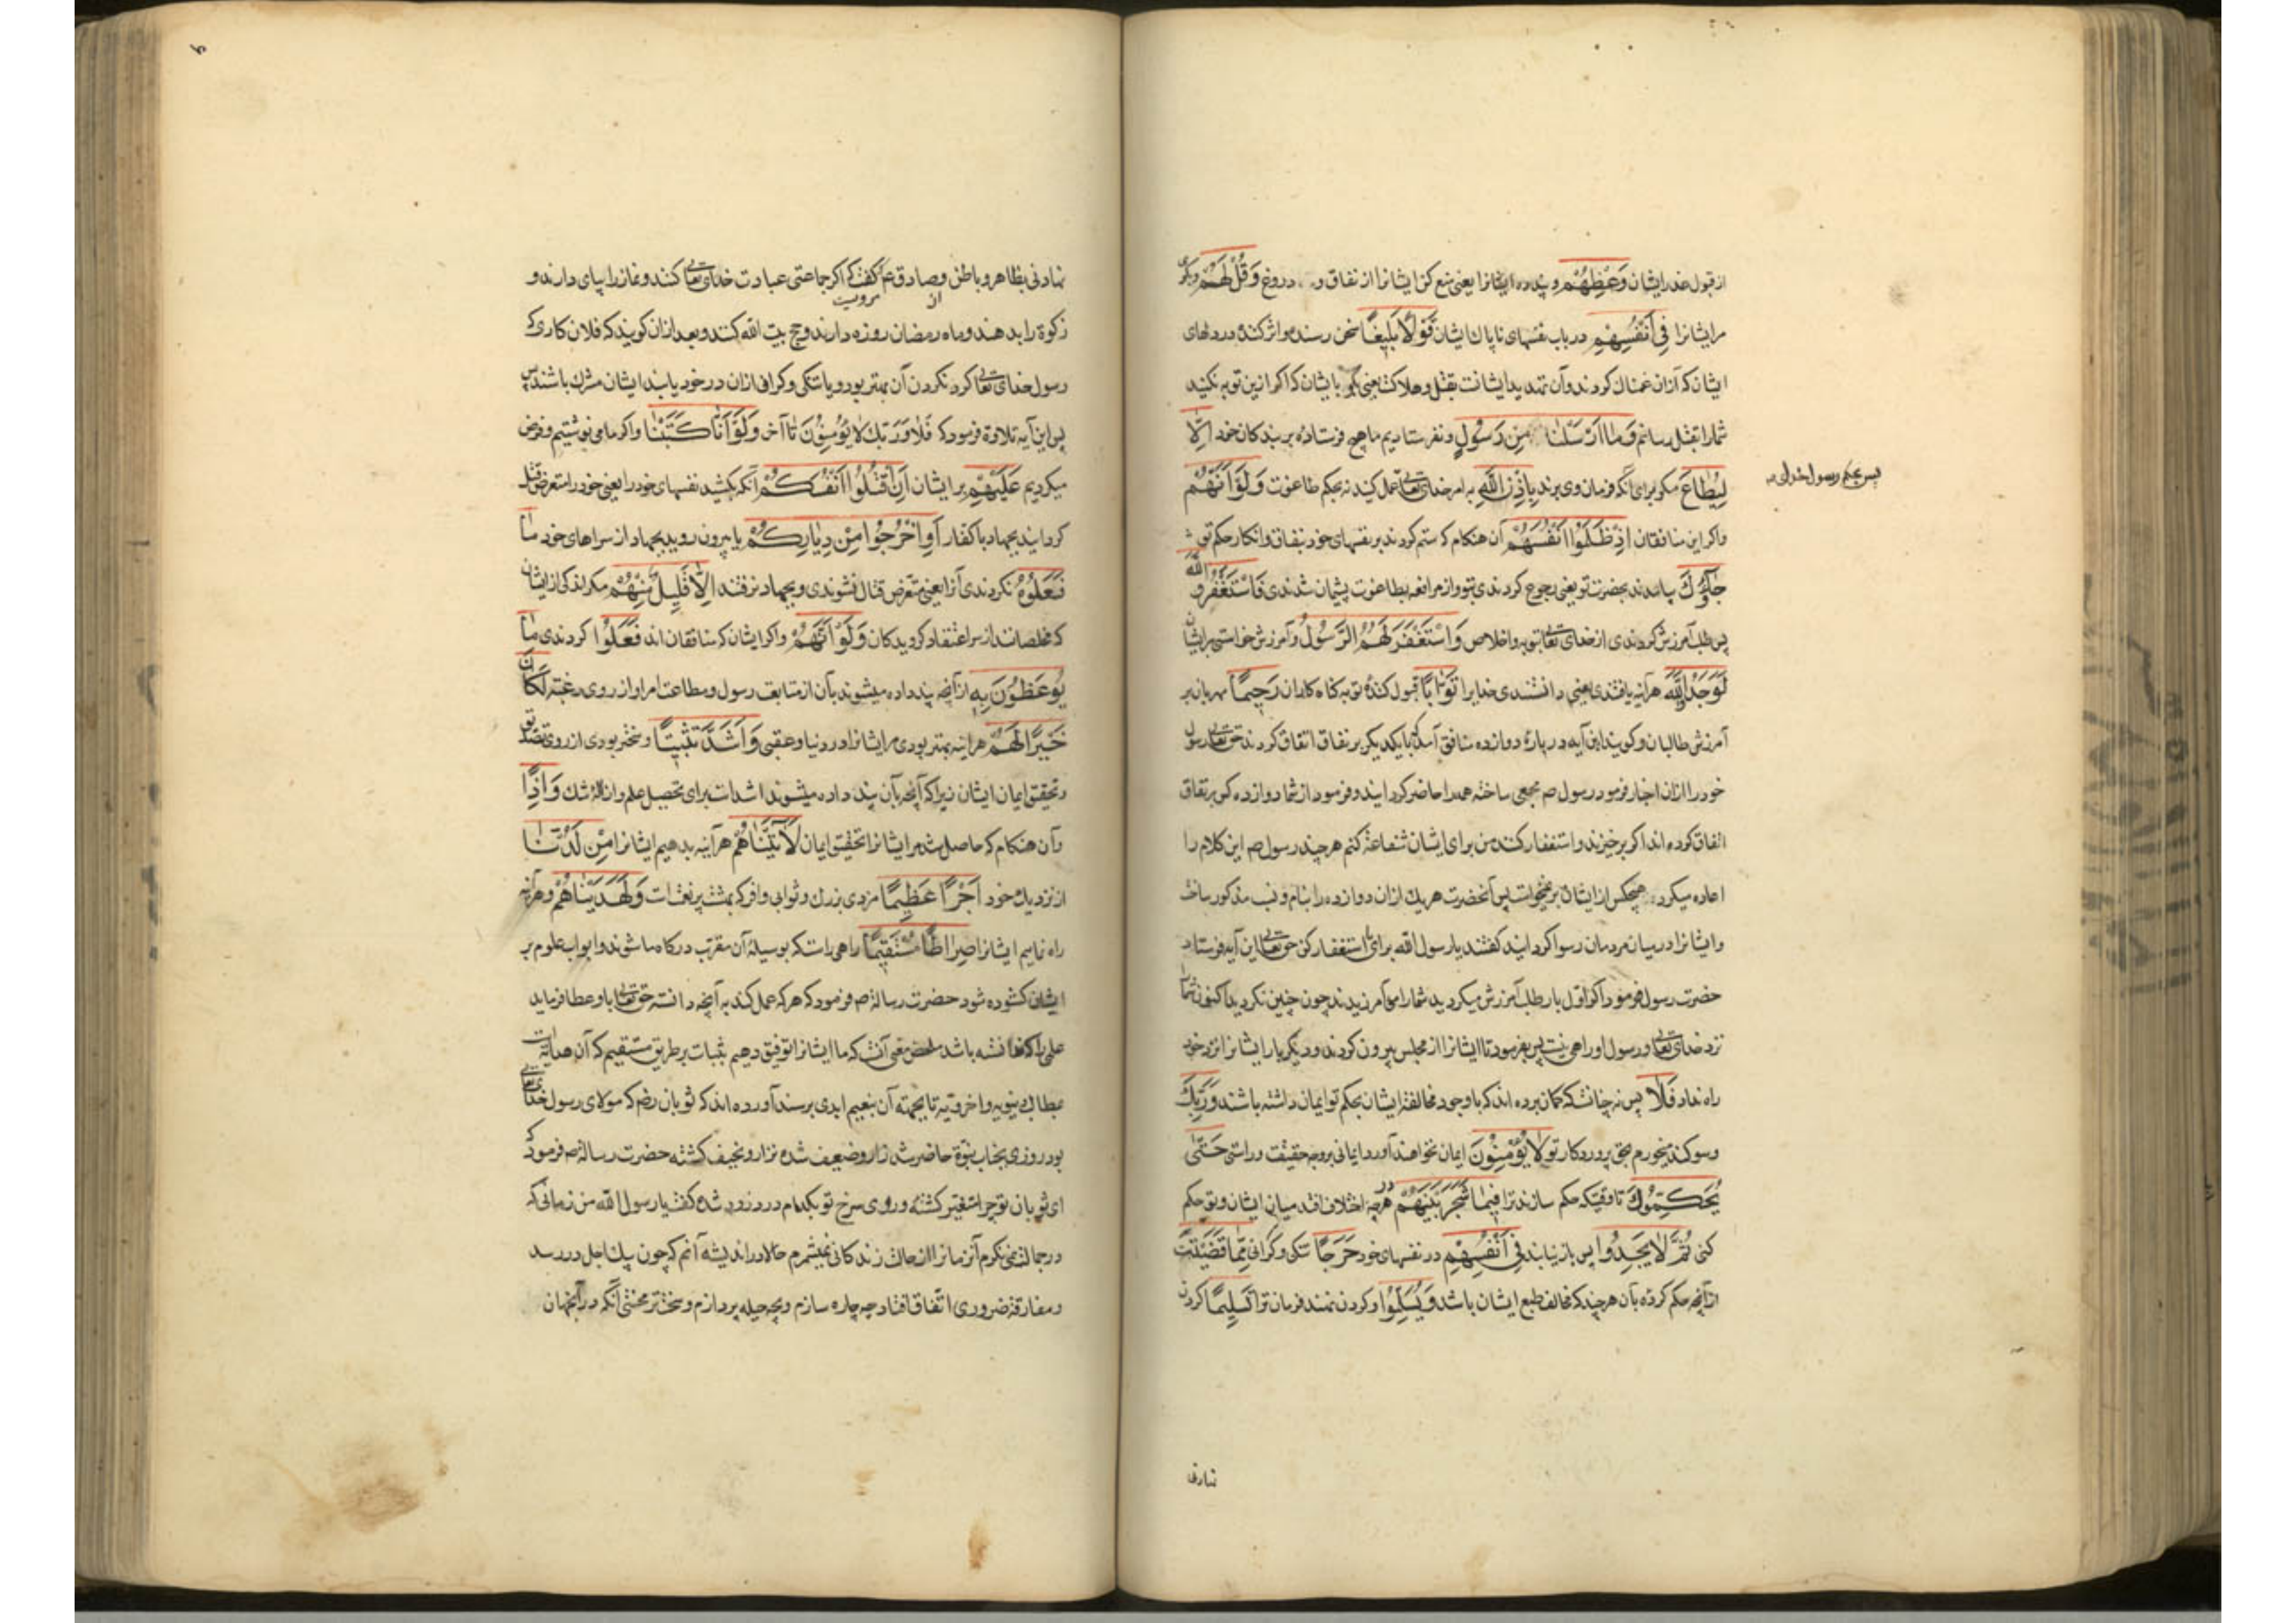 از قبول عذر ایشان وَعِظْهُمْ و پند ده ایشانرا یعنی منع کن ایشانرا از نفاق و دروغ وَقُلْ لَهُمْ و بگوی
مر ایشانرا فِي اَنْفُسِهِمْ در باب نفسهای ناپاک ایشان قَوْلًا بَلِيغًا سخن رسنده و اثر کننده در دلهای
ایشان که از ان غمناک کردند و آن تهدید ایشانست بقتل و هلاکت یعنی بگو با یشان که اگر ازین توبه نکنید
شما را بقتل رسانم وَمَا اَرْسَلْنَا مِنْ رَسُولٍ و نفرستادیم ما هیچ فرستاده بر بندکان خود اِلَّا
لِيُطَاعَ مگر برای آنکه فرمان وی برند بِاِذْنِ اللّٰهِ به امر خدای تعالی عمل کنید نه بحکم طاغوت وَلَوْ اَنَّهُمْ
پس بحکم رسول خدای
واکر این منافقان اِذْ ظَلَمُوا اَنْفُسَهُمْ آن هنکام که ستم کردند بر نفسهای خود بنفاق و انکار حکم تو
جَاؤُكَ بیامدند بحضرت تو یعنی رجوع کردندی بتو و از مرافعه بطاغوت پشیمان شدندی فَاسْتَغْفَرُوا اللّٰهَ
پس طلب آمرزش کردندی از خدای تعالی بتوبه و اخلاص وَاسْتَغْفَرَ لَهُمُ الرَّسُولُ و آمرزش خواستی برایشان
لَوَجَدُوا اللّٰهَ هرآینه یافتندی یعنی دانستندی خدایرا تَوَّابًا قبول کننده توبه کناه کاران رَحِيمًا مهربان بر
آمرزش طالبان و کویند این آیه در باره دوازده منافق آمد که بایکدیکر بر نفاق اتفاق کردند حق تعالی رسول
خود را ازان اخبار فرمود رسول ص مجمعی ساخته همه را حاضر کردانید و فرمود از شما دوازده کس بر نفاق
اتفاق کرده اند اکر برخیزند و استغفار کنند من برای ایشان شفاعة کنم هرچند رسول ص این کلام را
اعاده میکرد هیچکس از ایشان برنمیخواست پس آنحضرت هر یک ازان دوازده را بنام و نسب مذکور ساخت
و ایشانرا در میان مردمان رسوا کردانید کفتند یا رسول الله برای ما استغفار کن حق تعالی این آیه فرستاد
حضرت رسول فرمود اکر اول بار طلب آمرزش میکردید شما را می آمرزیدند چون چنین نکردید اکنون شما را
نزد خدای تعالی و رسول او راهی نیست پس بفرمود تا ایشانرا از مجلس بیرون کردند و دیگر بار ایشانرا نزد خود
راه نداد فَلَا پس نه چنانست که کمان برده اند که با وجود مخالفت ایشان بحکم تو ایمان داشته باشند وَرَبِّكَ
و سوکند میخورم بحق پروردکار تو لَا يُؤْمِنُونَ ایمان نخواهند آورد ایمانی بر وجه حقیقت و راستی حَتّٰى
يُحَكِّمُوكَ تا وقتیکه حکم سازند ترا فِيمَا شَجَرَ بَيْنَهُمْ در هرچه اختلاف افتد میان ایشان و تو حکم
کنی ثُمَّ لَا يَجِدُوا پس باز نیابند فِي اَنْفُسِهِمْ در نفسهای خود حَرَجًا تنکی و کرانی مِمَّا قَضَيْتَ
از آنچه حکم کرده بآن هرچند که مخالف طبع ایشان باشد وَيُسَلِّمُوا و کردن نهند فرمان ترا تَسْلِيمًا کردن
نهادنی بظاهر و باطن و صادق ع کفت که اکر جماعتی عبادت خدای تعالی کنند و نماز را بپای دارند و
از مرویست
زکوة را بدهند و ماه رمضان روزه دارند و حج بیت الله کنند و بعد ازان کویند که فلان کاری که
رسول خدای تعالی کرد نکردن آن بهتر بود و یا تنکی و کرانی ازان در خود یابند ایشان مشرک باشند پس
پس این آیه تلاوة فرمود که فَلَا وَرَبِّكَ لَا يُؤْمِنُونَ تا آخر وَلَوْ اَنَّا كَتَبْنَا واکر ما می نوشتیم و فرض
میکردیم عَلَيْهِمْ بر ایشان اَنِ اقْتُلُوا اَنْفُسَكُمْ آنکه بکشید نفسهای خود را یعنی خود را متعرض قتل
کردانید بجهاد با کفار اَوِ اخْرُجُوا مِنْ دِيَارِكُمْ یا بیرون روید بجهاد از سراهای خود مَا
فَعَلُوهُ نکردندی آنرا یعنی متعرض قتال نشوندی و بجهاد نرفتند اِلَّا قَلِيلٌ مِنْهُمْ مکر اندکی از ایشان
که مخلصانند از سر اعتقاد کرویدکان وَلَوْ اَنَّهُمْ واکر ایشان که منافقان اند فَعَلُوا کردندی مَا
يُوعَظُونَ بِهِ از آنچه پند داده میشوند بآن از متابعت رسول و مطاعت امر او از روی رغبت لَكَانَ
خَيْرًا لَهُمْ هرآینه بهتر بودی مر ایشانرا در دنیا و عقبی وَاَشَدَّ تَثْبِيتًا و سختر بودی از روی تصدیق
و تحقیق ایمان ایشان زیرا که آنچه بآن پند داده میشوند اشد است برای تحصیل علم و ازاله شک وَاِذًا
و آن هنکام که حاصل شد مر ایشانرا تحقیق ایمان لَآتَيْنَاهُمْ هرآینه بدهیم ایشانرا مِنْ لَدُنَّا
از نزدیک خود اَجْرًا عَظِيمًا مزدی بزرک و ثوابی وافر که بهشت پر نعمت است وَلَهَدَيْنَاهُمْ و هرآینه
راه نمایم ایشانرا صِرَاطًا مُسْتَقِيمًا راهی راست که بوسیله آن مقرب درکاه ما شوند و ابواب علوم بر
ایشان کشوده شود حضرت رسالة ص فرمود که هر که عمل کند به آنچه دانسته حق تعالی باو عطا فرماید
علمی را که ندانسته باشد ملخص معنی آنست که ما ایشانرا توفیق دهیم بثبات بر طریق مستقیم که آن هدایتست
بمطالب دنیویه و اخرویه تا بجهة آن بنعیم ابدی برسند آورده اند که ثوبان رضم که مولای رسول خدای تعالی
بود روزی بجناب نبوة حاضر شد زار و ضعیف شده نزار و نحیف کشته حضرت رسالة ص فرمود که
ای ثوبان تو چرا متغیر کشته و روی سرخ تو بکدام درد زرد شده کفت یا رسول الله من زمانی که
در جمالت نمی نکرم آنزمانرا از حساب زندکانی نمیشمرم حالا در اندیشه آنم که چون پیک اجل در رسد
و مفارقة ضروری اتفاق افتاد چه چاره سازم و بچه حیله پردازم و سختتر محنتی آنکه در آنجهان
نهادنی